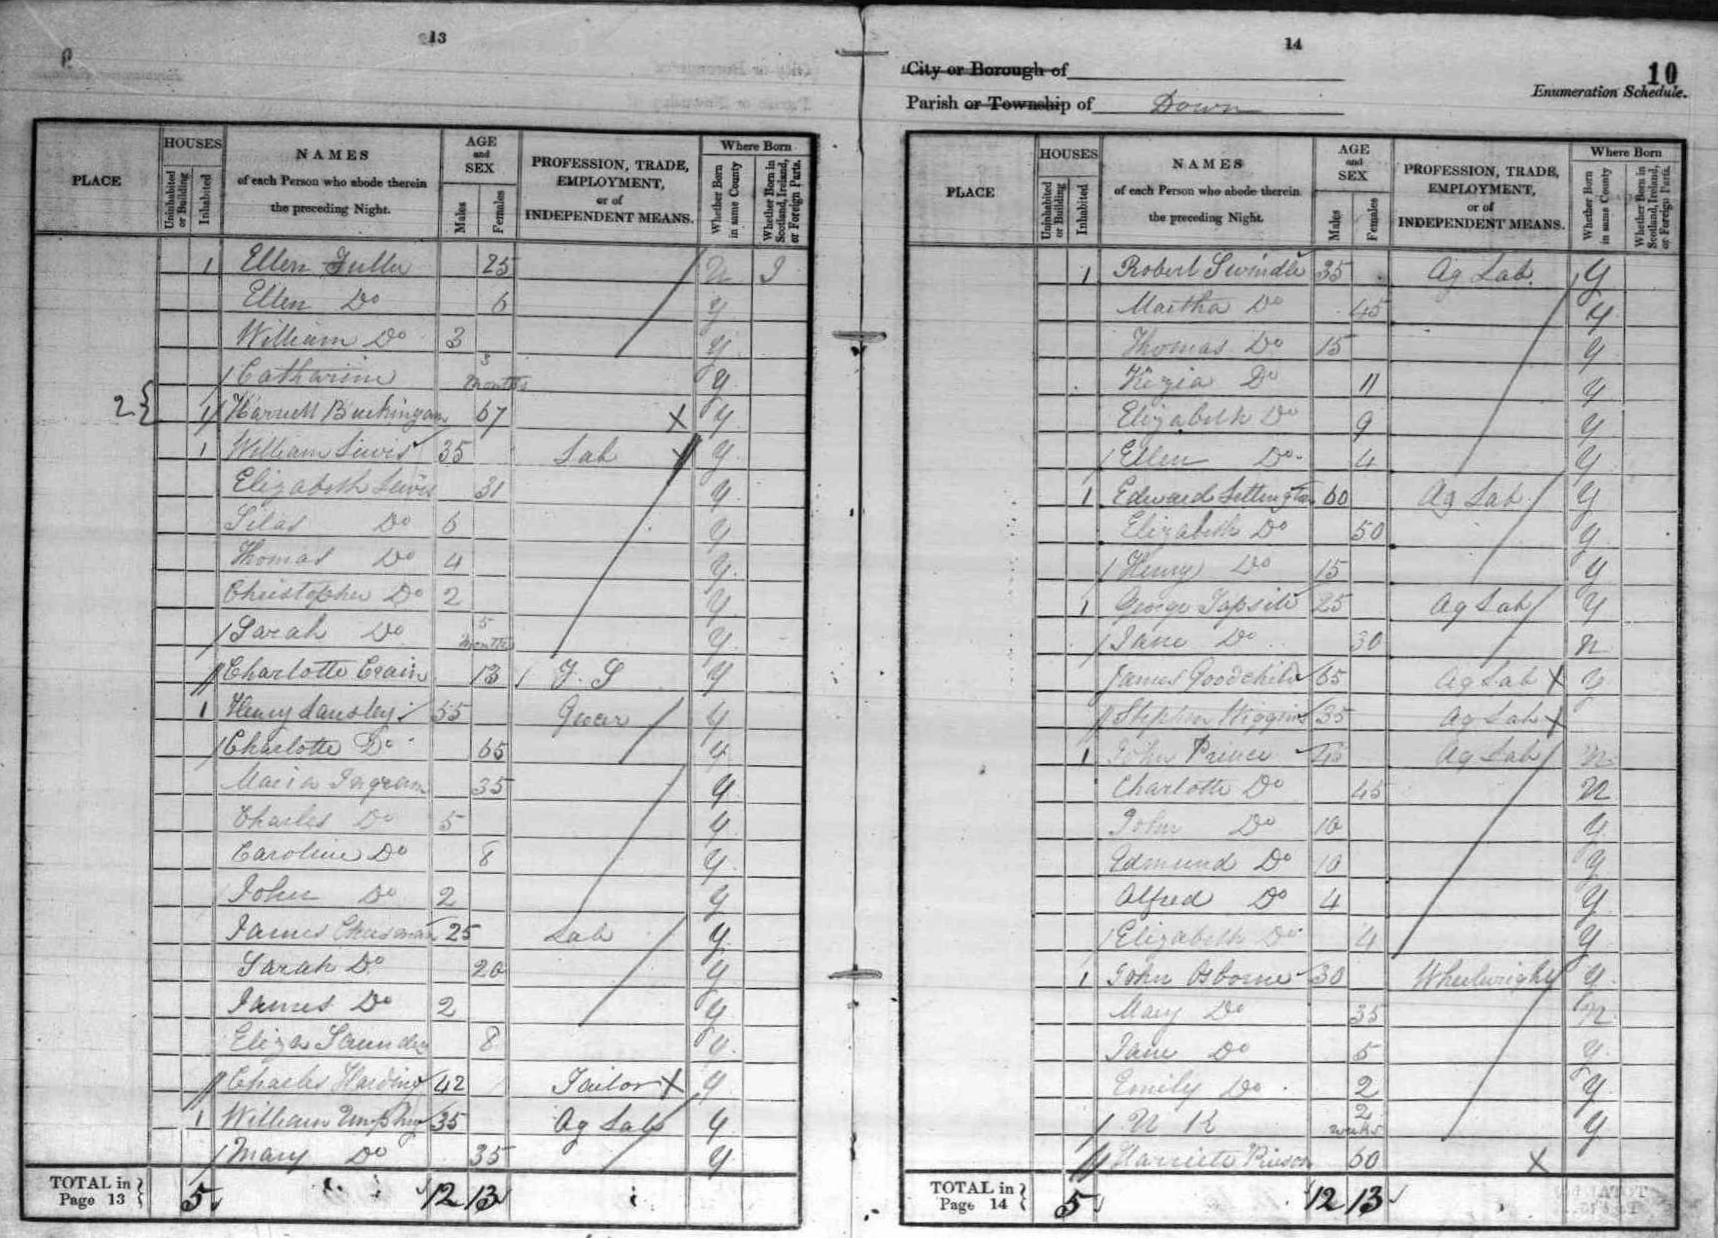 13
PLACE
HOUSES
Uninhabited or Building
Inhabited
NAMES
of each Person who abode therein
the preceding Night.
AGE
and
SEX
Males
Females
PROFESSION, TRADE,
EMPLOYMENT,
or of
INDEPENDENT MEANS.
Where Born
Whether Born in same County
Whether Born in Scotland, Ireland, or Foreign Parts.
1 Ellen Fuller 25 N I
Ellen Do 6 y
William Do 3 y
Catharine 3 months y
2 { 1 Harriett Buckingam 67 X y
1 William Lewis 35 Lab y
Elizabeth Lewis 31 y
Silas Do 6 y
Thomas Do 4 y
Christopher Do 2 y
Sarah Do 5 months y
Charlotte Crain 13 F. S y
1 Henry Lansley 55 y
Charlotte Do 65 y
Maria Ingram 35 y
Charles Do 5 y
Caroline Do 8 y
John Do 2 y
James Cheesman 25 Lab y
Sarah Do 20 y
James Do 2 y
Eliza Saunders 8 y
Charles Harding 42 Tailor X y
1 William Umphry 35 Ag Lab y
Mary Do 35 y
TOTAL in
Page 13 } 5 12 13
14
City or Borough of
10
Enumeration Schedule.
Parish or Township of Down
PLACE
HOUSES
Uninhabited or Building
Inhabited
NAMES
of each Person who abode therein
the preceding Night.
AGE
and
SEX
Males
Females
PROFESSION, TRADE,
EMPLOYMENT,
or of
INDEPENDENT MEANS.
Where Born
Whether Born in same County
Whether Born in Scotland, Ireland, or Foreign Parts.
1 Robert Swindle 35 Ag Lab. y
Martha Do 45 y
Thomas Do 15 y
Kezia Do 11 y
Elizabeth Do 9 y
Ellen Do. 4 y
1 Edward Lettington 60 Ag Lab y
Elizabeth Do 50 y
Henry Do 15 y
1 George Tapsell 25 Ag Lab y
Jane Do 30 n
James Goodchild 65 Ag Lab X y
Stephen Higgins 35 Ag Lab X
1 John Prince 45 Ag Lab n
Charlotte Do 45 n
John Do 10 y
Edmund Do 10 y
Alfred Do 4 y
Elizabeth Do 4 y
1 John Osborne 30 Wheelwright y
Mary Do 35 n
Jane Do 5 y
Emily Do 2 y
N K 2 weeks y
Harriete 60 X
TOTAL in
Page 14 } 5 12 13